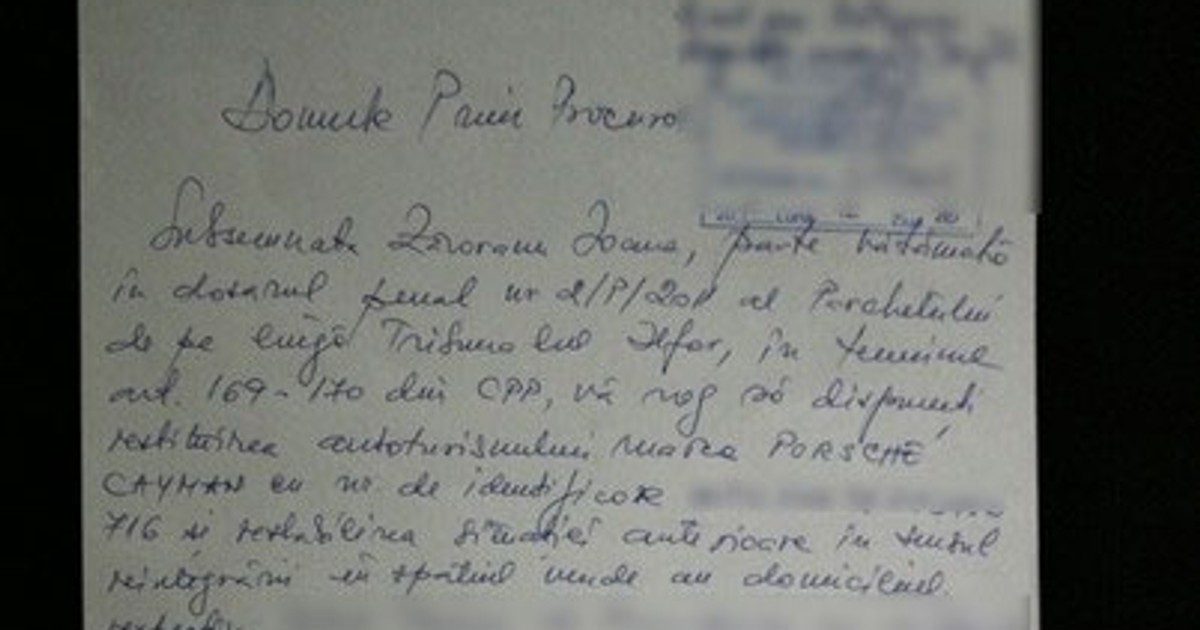 Domnule Prim Procuro
Subsemnata Zăvoranu Ioana, parte vătămată
în dosarul penal nr 2/P/2011 al Parchetului
de pe lângă Tribunalul Ilfov, în temeiul
art. 169-170 din CPP, vă rog să dispuneți
restituirea autoturismului marca PORSCHE
CAYMAN cu nr. de identificare
716 și restabilirea situației anterioare în sensul
reintegrării în spațiul unde am domiciliul